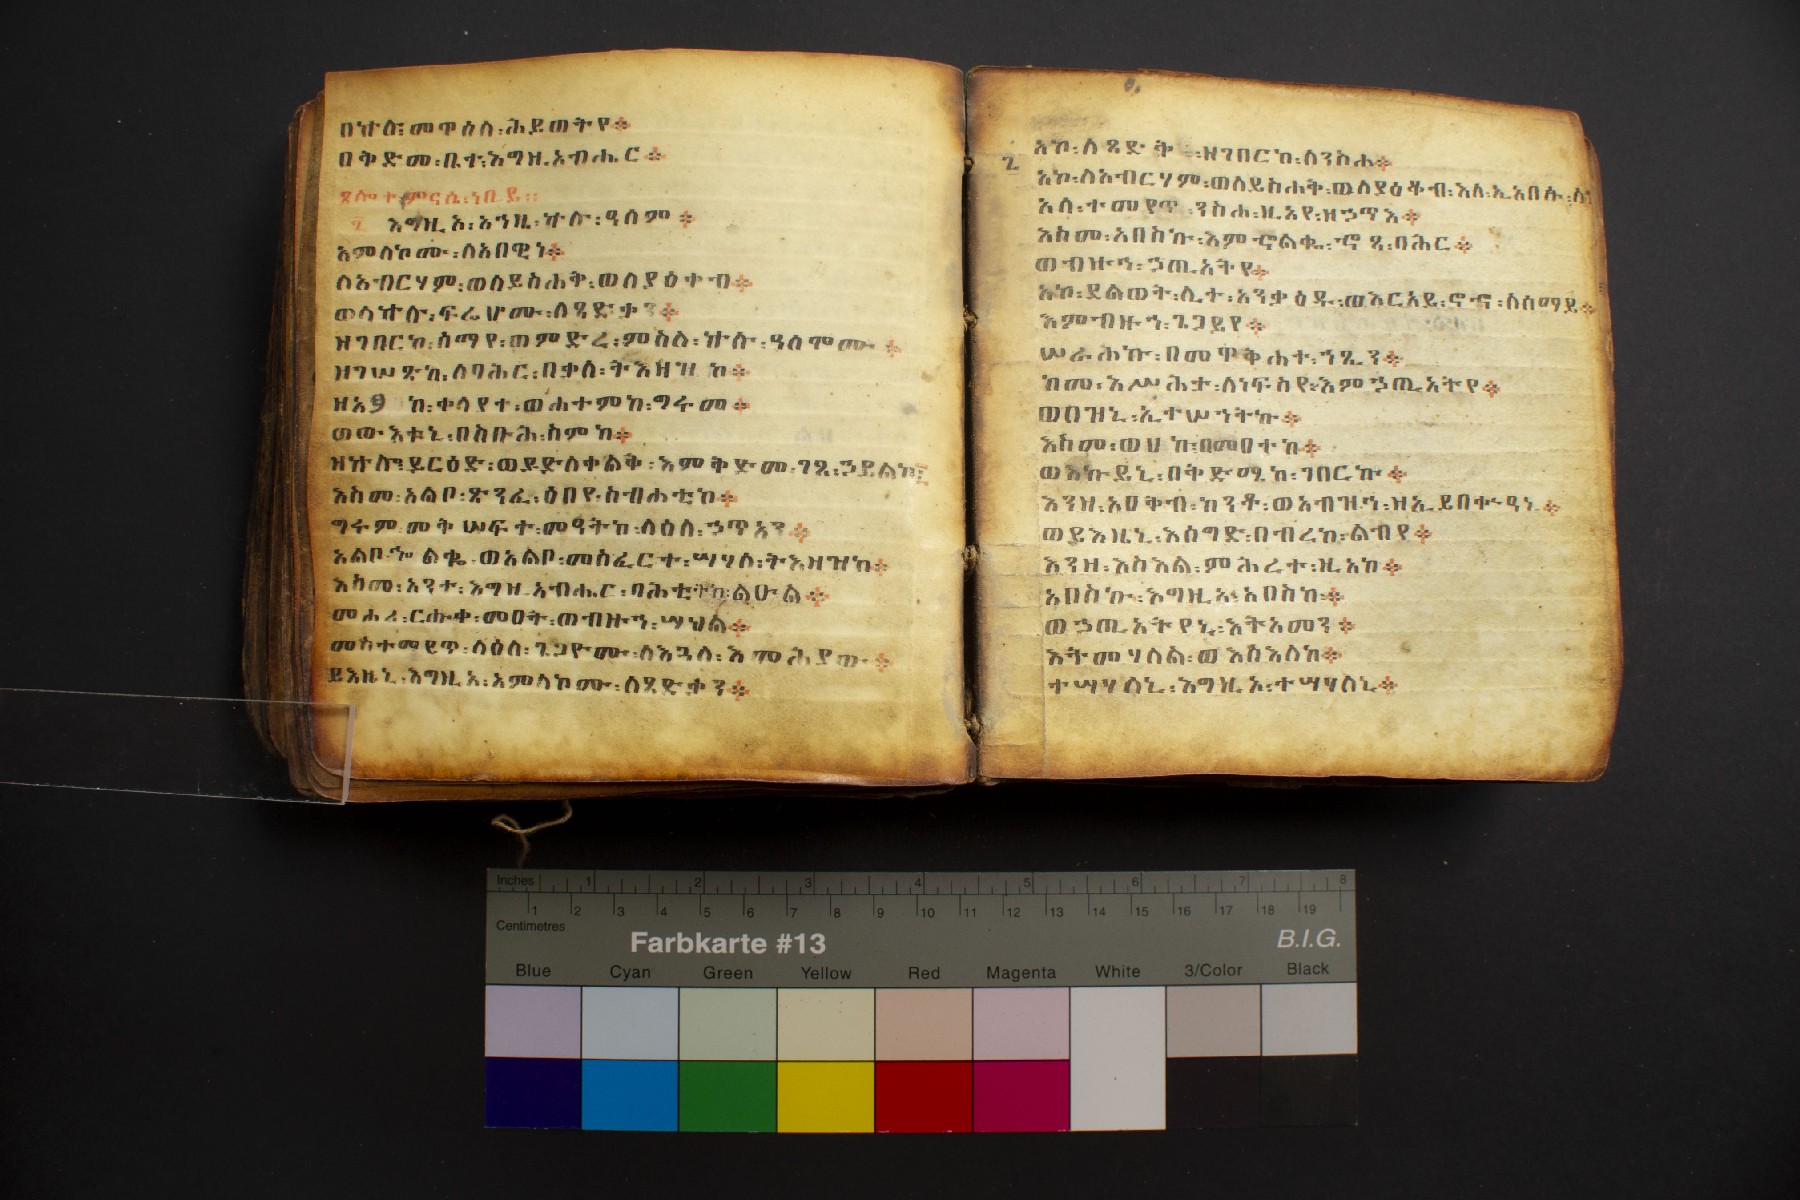 በኵሉ፡ መዋዕለ፡ ሕይወትየ፨
በቅድመ፡ ቤተ፡ እግዚአብሔር፨
ጸሎተ፡ ምናሴ፡ ነቢይ።
እግዚአ፡ አኃዜ፡ ኵሉ፡ ዓለም፨
አምላኮሙ፡ ለአበዊነ፨
ለአብርሃም፡ ወለይስሐቅ፡ ወለያዕቀብ፨
ወላኵሉ፡ ፍሬሆሙ፡ ለጻድቃን፨
ዘገበርከ፡ ሰማየ፡ ወምድረ፡ ምስለ፡ ኵሉ፡ ዓለሞሙ፨
ዘገሠጽካ፡ ለባሕር፡ በቃለ፡ ትእዛዝከ፨
ቀላየተ፡ ወሐተምከ፡ ግሩመ፨
ወውእቱኒ፡ በስቡሕ፡ ስምከ፨
ይርዕድ፡ ወይድለቀልቅ፡ እምቅድመ፡ ገጸ፡ ኃይልከ፡
እስመ፡ አልቦ፡ ጽንፈ፡ ዕበየ፡ ስብሐቲከ፨
ግሩም፡ መቅሠፍተ፡ መዓትከ፡ ላዕለ፡ ኃጥአን፨
አልቦ፡ ኍልቈ፡ ወአልቦ፡ መስፈርተ፡ ሣህለ፡ ትእዛዝከ፨
እስመ፡ አንተ፡ እግዚአብሔር፡ ባሕቲትከ፡ ልዑል፨
መሐሪ፡ ርሑቀ፡ መዐት፡ ወብዙኀ፡ ሣህል፨
መስተማይጥ፡ ላዕለ፡ ጌጋዮሙ፡ ለእጓለ፡ እመሕያው፨
ይእዜኒ፡ እግዚአ፡ አምላኮሙ፡ ለጻድቃን፨
አኮ፡ ለጻድቅ፡ ዘገበርከ፡ ለንስሐ፨
፪
አኮ፡ ለአብርሃም፡ ወለይስሐቅ፡ ወለያዕቆብ፡ እለ፡ ኢአበሱ፡
አላ፡ ተመየጥ፡ ንስሐ፡ ዚአየ፡ ዘኃጥእ፨
እስመ፡ አበስኩ፡ እምኆልቈ፡ ኆጻ፡ ባሕር፨
ወብዙኅ፡ ኃጢአትየ፨
አኮ፡ ደልወት፡ ሊተ፡ አንቃዕዱ፡ ወእርአይ፡ ኖኀ፡ ለሰማይ፨
እምብዙኅ፡ ጌጋይየ፨
ሠራሕኩ፡ በመዋቅሐተ፡ ኀጺን፨
ከመ፡ እሥሕታ፡ ለነፍስየ፡ እምኃጢአትየ፨
ወዐዝኒ፡ ኢተሠኀትኩ፨
እስመ፡ ወሀከ፡ በመዐተከ፨
ወእኩይኒ፡ በቅድሜከ፡ ገበርኩ፨
እንዘ፡ አዐቅብ፡ ከንቶ፡ ወአብዝኅ፡ ዘኢይበቍዓኒ፨
ወይእዜኒ፡ እሰግድ፡ በብረከ፡ ልብየ፨
እንዘ፡ እስእል፡ ምሕረተ፡ ዚአከ፨
አበስኩ፡ እግዚአ፡ አበስከ፨
ወኃጢአትየኒ፡ እትአመን፨
እትመሃለል፡ ወእስእለከ፨
ተሣሃለኒ፡ እግዚአ፡ ተሣሃለኒ፨
Inches 1 2 3 4 5 6 7 8
1 2 3 4 5 6 7 8 9 10 11 12 13 14 15 16 17 18 19
Centimetres
Farbkarte #13
B.I.G.
Blue Cyan Green Yellow Red Magenta White 3/Color Black